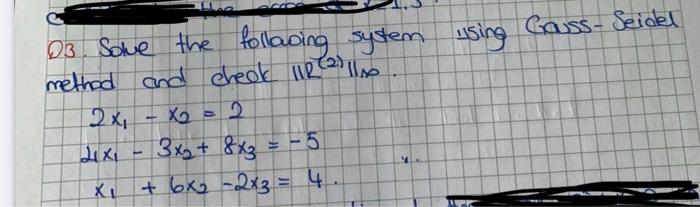 Q3. Solve the following system using Gauss-Seidel
method and check ||R^(2)||∞.
2x₁ - x₂ = 2
4x₁ - 3x₂ + 8x₃ = -5
x₁ + 6x₂ - 2x₃ = 4.